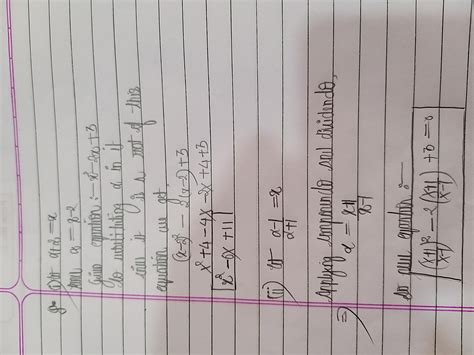 (i) let α+2 = x
then α = x-2
Given equation :- x²-2x+3
So substituting α in it
since it is a root of this
equation we get
(x-2)² - 2(x-2)+3
x²+4-4x-2x+4+3
x²-6x+11
(ii) let α-1/α+1 = x
Applying componendo and dividendo,
⇒ α = x+1/x-1
So our equation :-
(x+1/x-1)² - 2(x+1/x-1) + 3 = 0